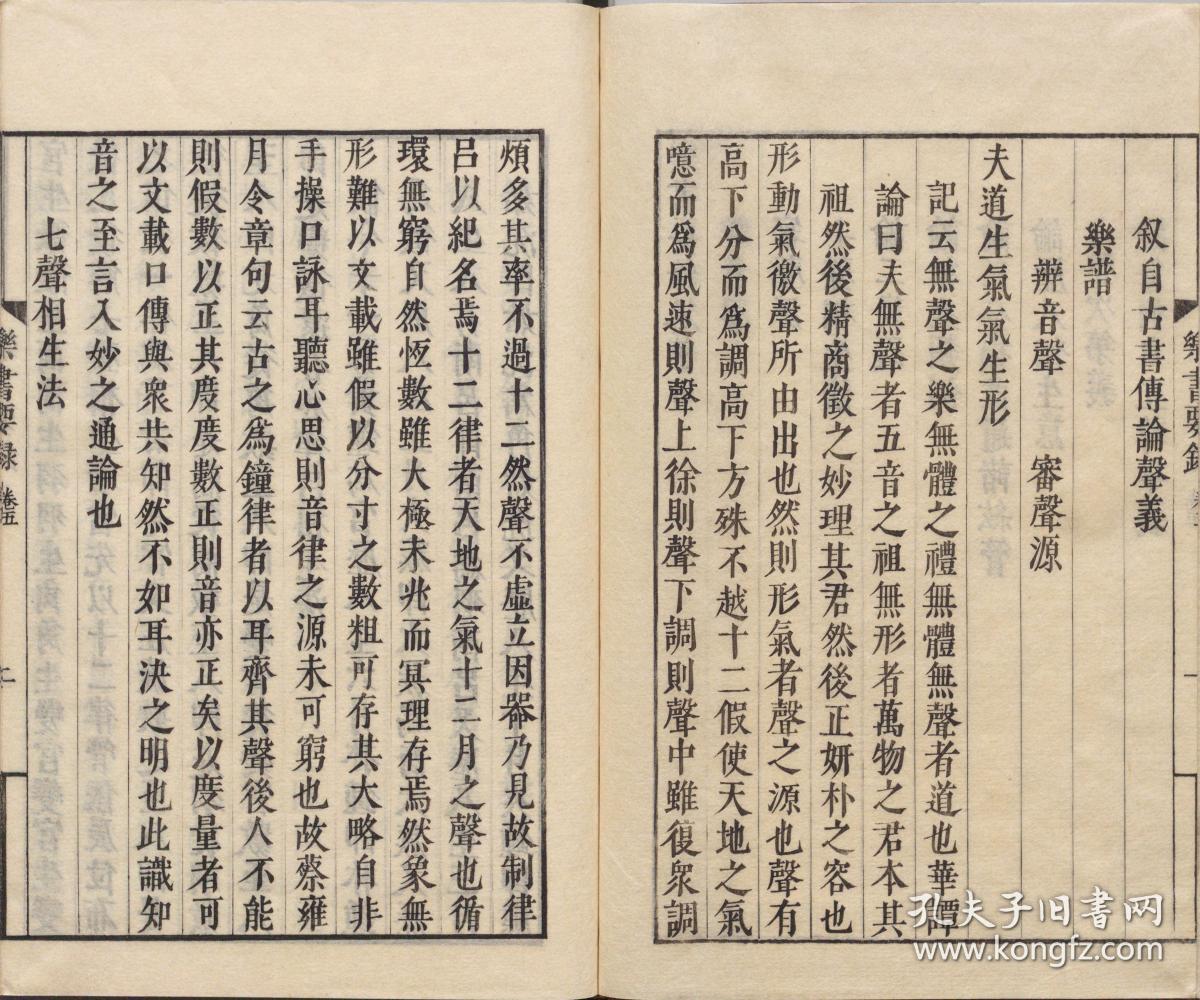 叙自古書傳論聲義
樂譜
辨音聲　審聲源
夫道生氣氣生形
記云無聲之樂無體之禮無體無聲者道也華譚
論曰夫無聲者五音之祖無形者萬物之君本其
祖然後精商徵之妙理其君然後正妍朴之容也
形動氣徹聲所由出也然則形氣者聲之源也聲有
高下分而爲調高下方殊不越十二假使天地之氣
噫而爲風速則聲上徐則聲下調則聲中雖復衆調
樂書要錄
一
煩多其率不過十二然聲不虛立因器乃見故制律
呂以紀名焉十二律者天地之氣十二月之聲也循
環無窮自然恆數雖大極未兆而冥理存焉然象無
形難以文載雖假以分寸之數粗可存其大略自非
手操口詠耳聽心思則音律之源未可窮也故蔡雍
月令章句云古之爲鐘律者以耳齊其聲後人不能
則假數以正其度度數正則音亦正矣以度量者可
以文載口傳與衆共知然不如耳決之明也此識知
音之至言入妙之通論也
七聲相生法
樂書要録　卷五
孔夫子旧书网
www.kongfz.com